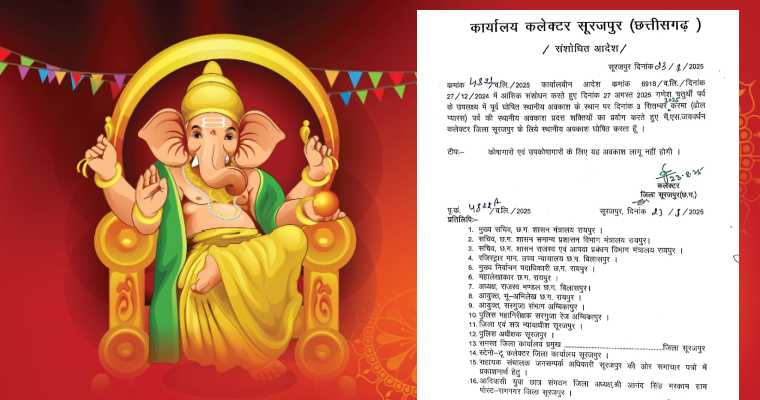 कार्यालय कलेक्टर सूरजपुर (छत्तीसगढ़ )
/ संशोधित आदेश/
सूरजपुर दिनांक 23/8/2025
कमांक /व.लि./2025 कार्यालयीन आदेश कमांक 6918/व.लि./दिनांक
27/12/2024 में आंशिक संशोधन करते हुए दिनांक 27 अगस्त 2025 गणेश चतुर्थी पर्व
के उपलक्ष्य में पूर्व घोषित स्थानीय अवकाश के स्थान पर दिनांक 3 सितम्बर 2025 करमा (ढोल
ग्यारस) पर्व की स्थानीय अवकाश प्रदत्त शक्तियों का प्रयोग करते हुए मैं,एस.जयवर्धन
कलेक्टर जिला सूरजपुर के लिये स्थानीय अवकाश घोषित करता हूँ ।
टीपः- कोषागारों एवं उपकोषागारों के लिए यह अवकाश लागू नहीं होगी ।
23-8-25
कलेक्टर
जिला सूरजपुर(छ.ग.)
पृ.कं. /व.लि./2025 सूरजपुर, दिनांक 23/8/2025
प्रतिलिपिः-
1. मुख्य सचिव, छ.ग. शासन मंत्रालय रायपुर ।
2. सचिव, छ.ग. शासन समान्य प्रशासन विभाग मंत्रालय रायपुर।
3. सचिव, छ.ग. शासन राजस्व एवं आपदा प्रबंधन विभाग मंत्रालय रायपुर ।
4. रजिस्ट्रार मान. उच्च न्यायालय छ.ग. बिलासपुर ।
5. मुख्य निर्वाचन पदाधिकारी छ.ग. रायपुर ।
6. महालेखाकार छ.ग. रायपुर ।
7. अध्यक्ष, राजस्व मण्डल छ.ग. बिलासपुर।
8. आयुक्त, भू-अभिलेख छ.ग. रायपुर ।
9. आयुक्त, सरगुजा संभाग अम्बिकापुर ।
10. पुलिस महानिरीक्षक सरगुजा रेंज अम्बिकापुर ।
11. जिला एवं सत्र न्यायाधीश सूरजपुर ।
12. पुलिस अधीक्षक सूरजपुर ।
13. समस्त जिला कार्यालय प्रमुख ........................ जिला सूरजपुर
14. स्टेनो-टू कलेक्टर जिला कार्यालय सूरजपुर ।
15. सहायक संचालक जनसम्पर्क अधिकारी सूरजपुर की ओर समाचार पत्रो में
प्रकाशनार्थ हेतु ।
16. आदिवासी युवा छात्र संगठन जिला अध्यक्ष,श्री आनंद सिंह मरकाम ग्राम
पोस्ट-रामनगर जिला सूरजपुर ।